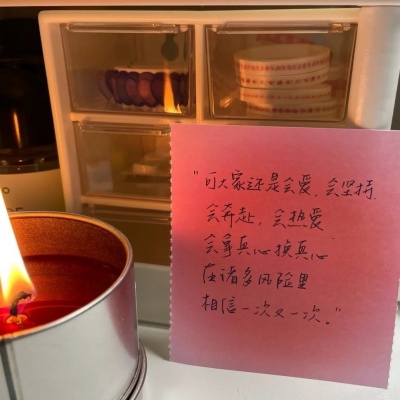 "可大家还是会爱、会坚持、
会奔赴，会热爱
会尋真心换真心
在诸多风险里
相信一次又一次。"